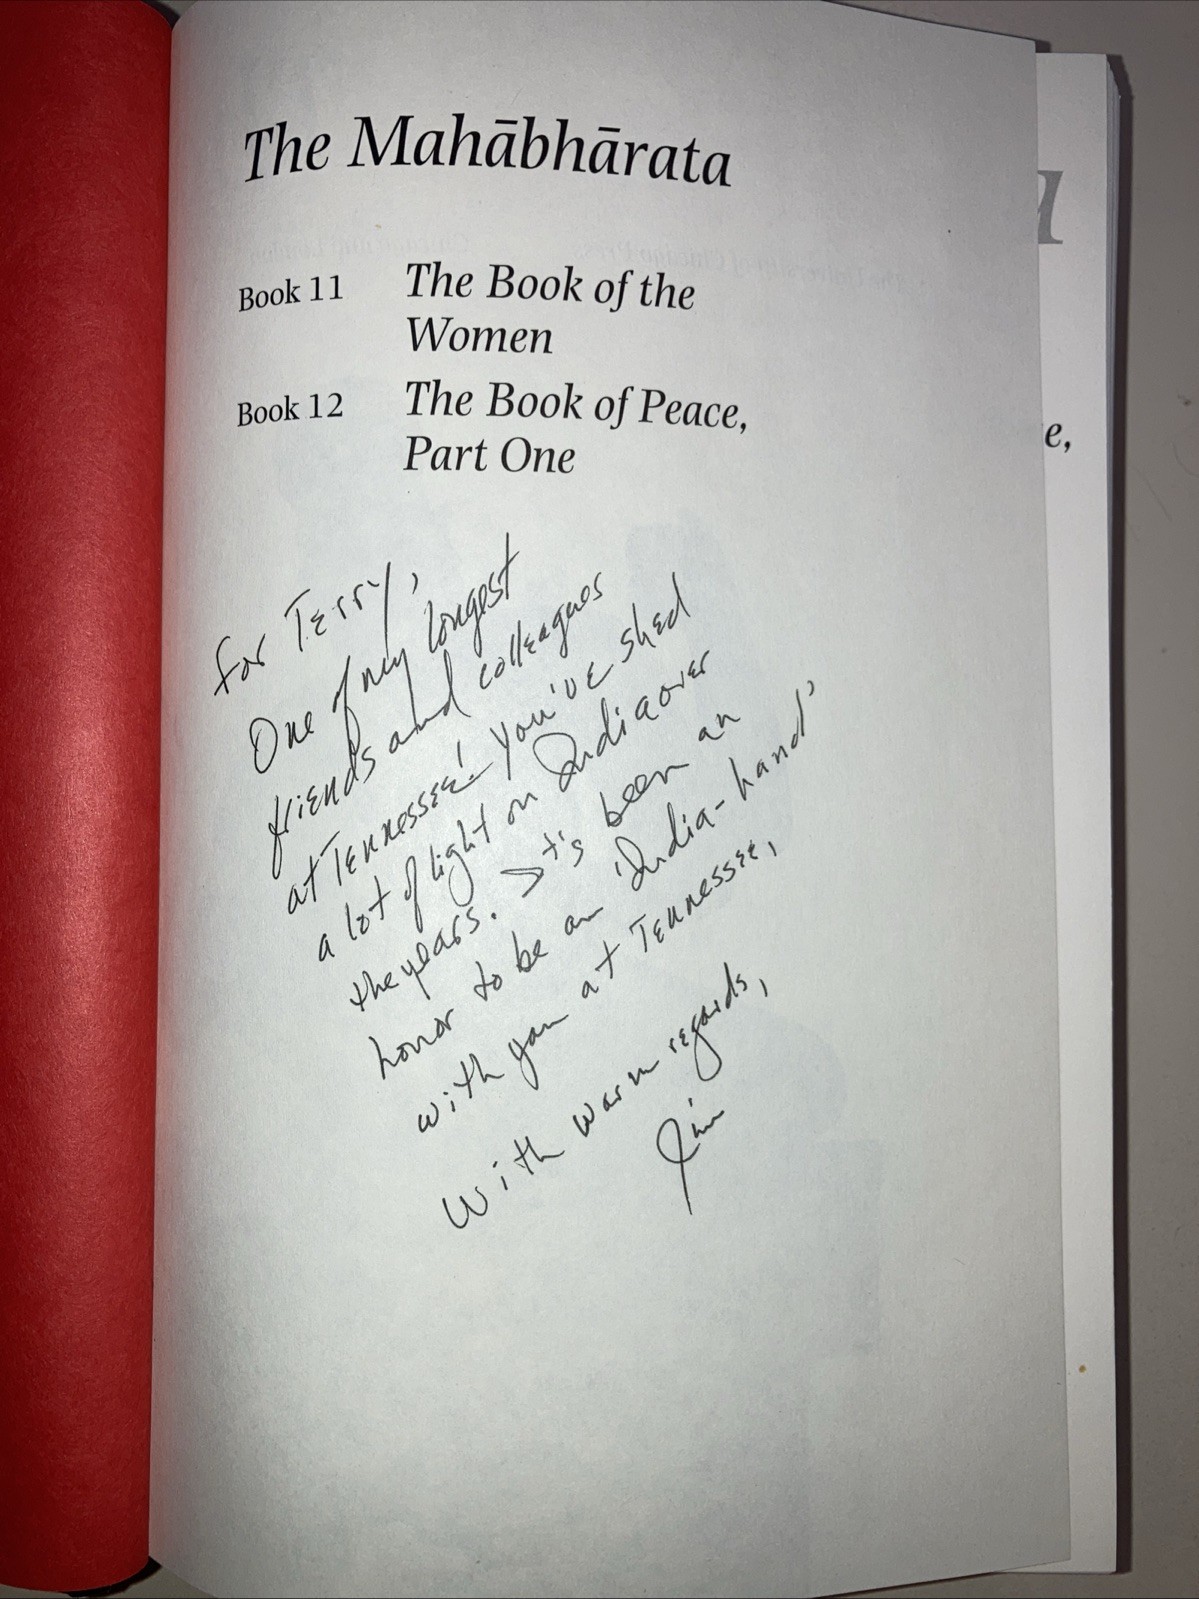 The Mahābhārata
Book 11 The Book of the
Women
Book 12 The Book of Peace,
Part One
e,
For Terry,
One of my longest
friends and colleagues
at Tennessee! You've shed
a lot of light on India over
the years. It's been an
honor to be an 'India-hand'
with you at Tennessee,
With warm regards,
Jim